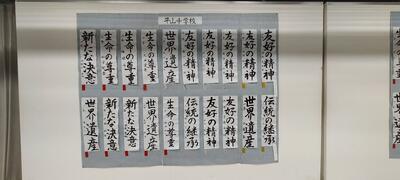 平山中学校
友好の精神
友好の精神
友好の精神
友好の精神
友好の精神
世界遺産
生命の尊重
生命の尊重
生命の尊重
新たな決意
伝統の継承
世界遺産
友好の精神
友好の精神
伝統の継承
生命の尊重
世界遺産
新たな決意
新たな決意
世界遺産